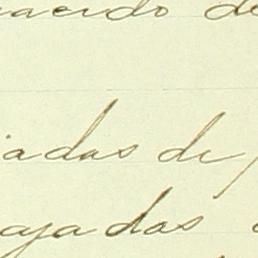 uerdo de
iadas de
ajadas